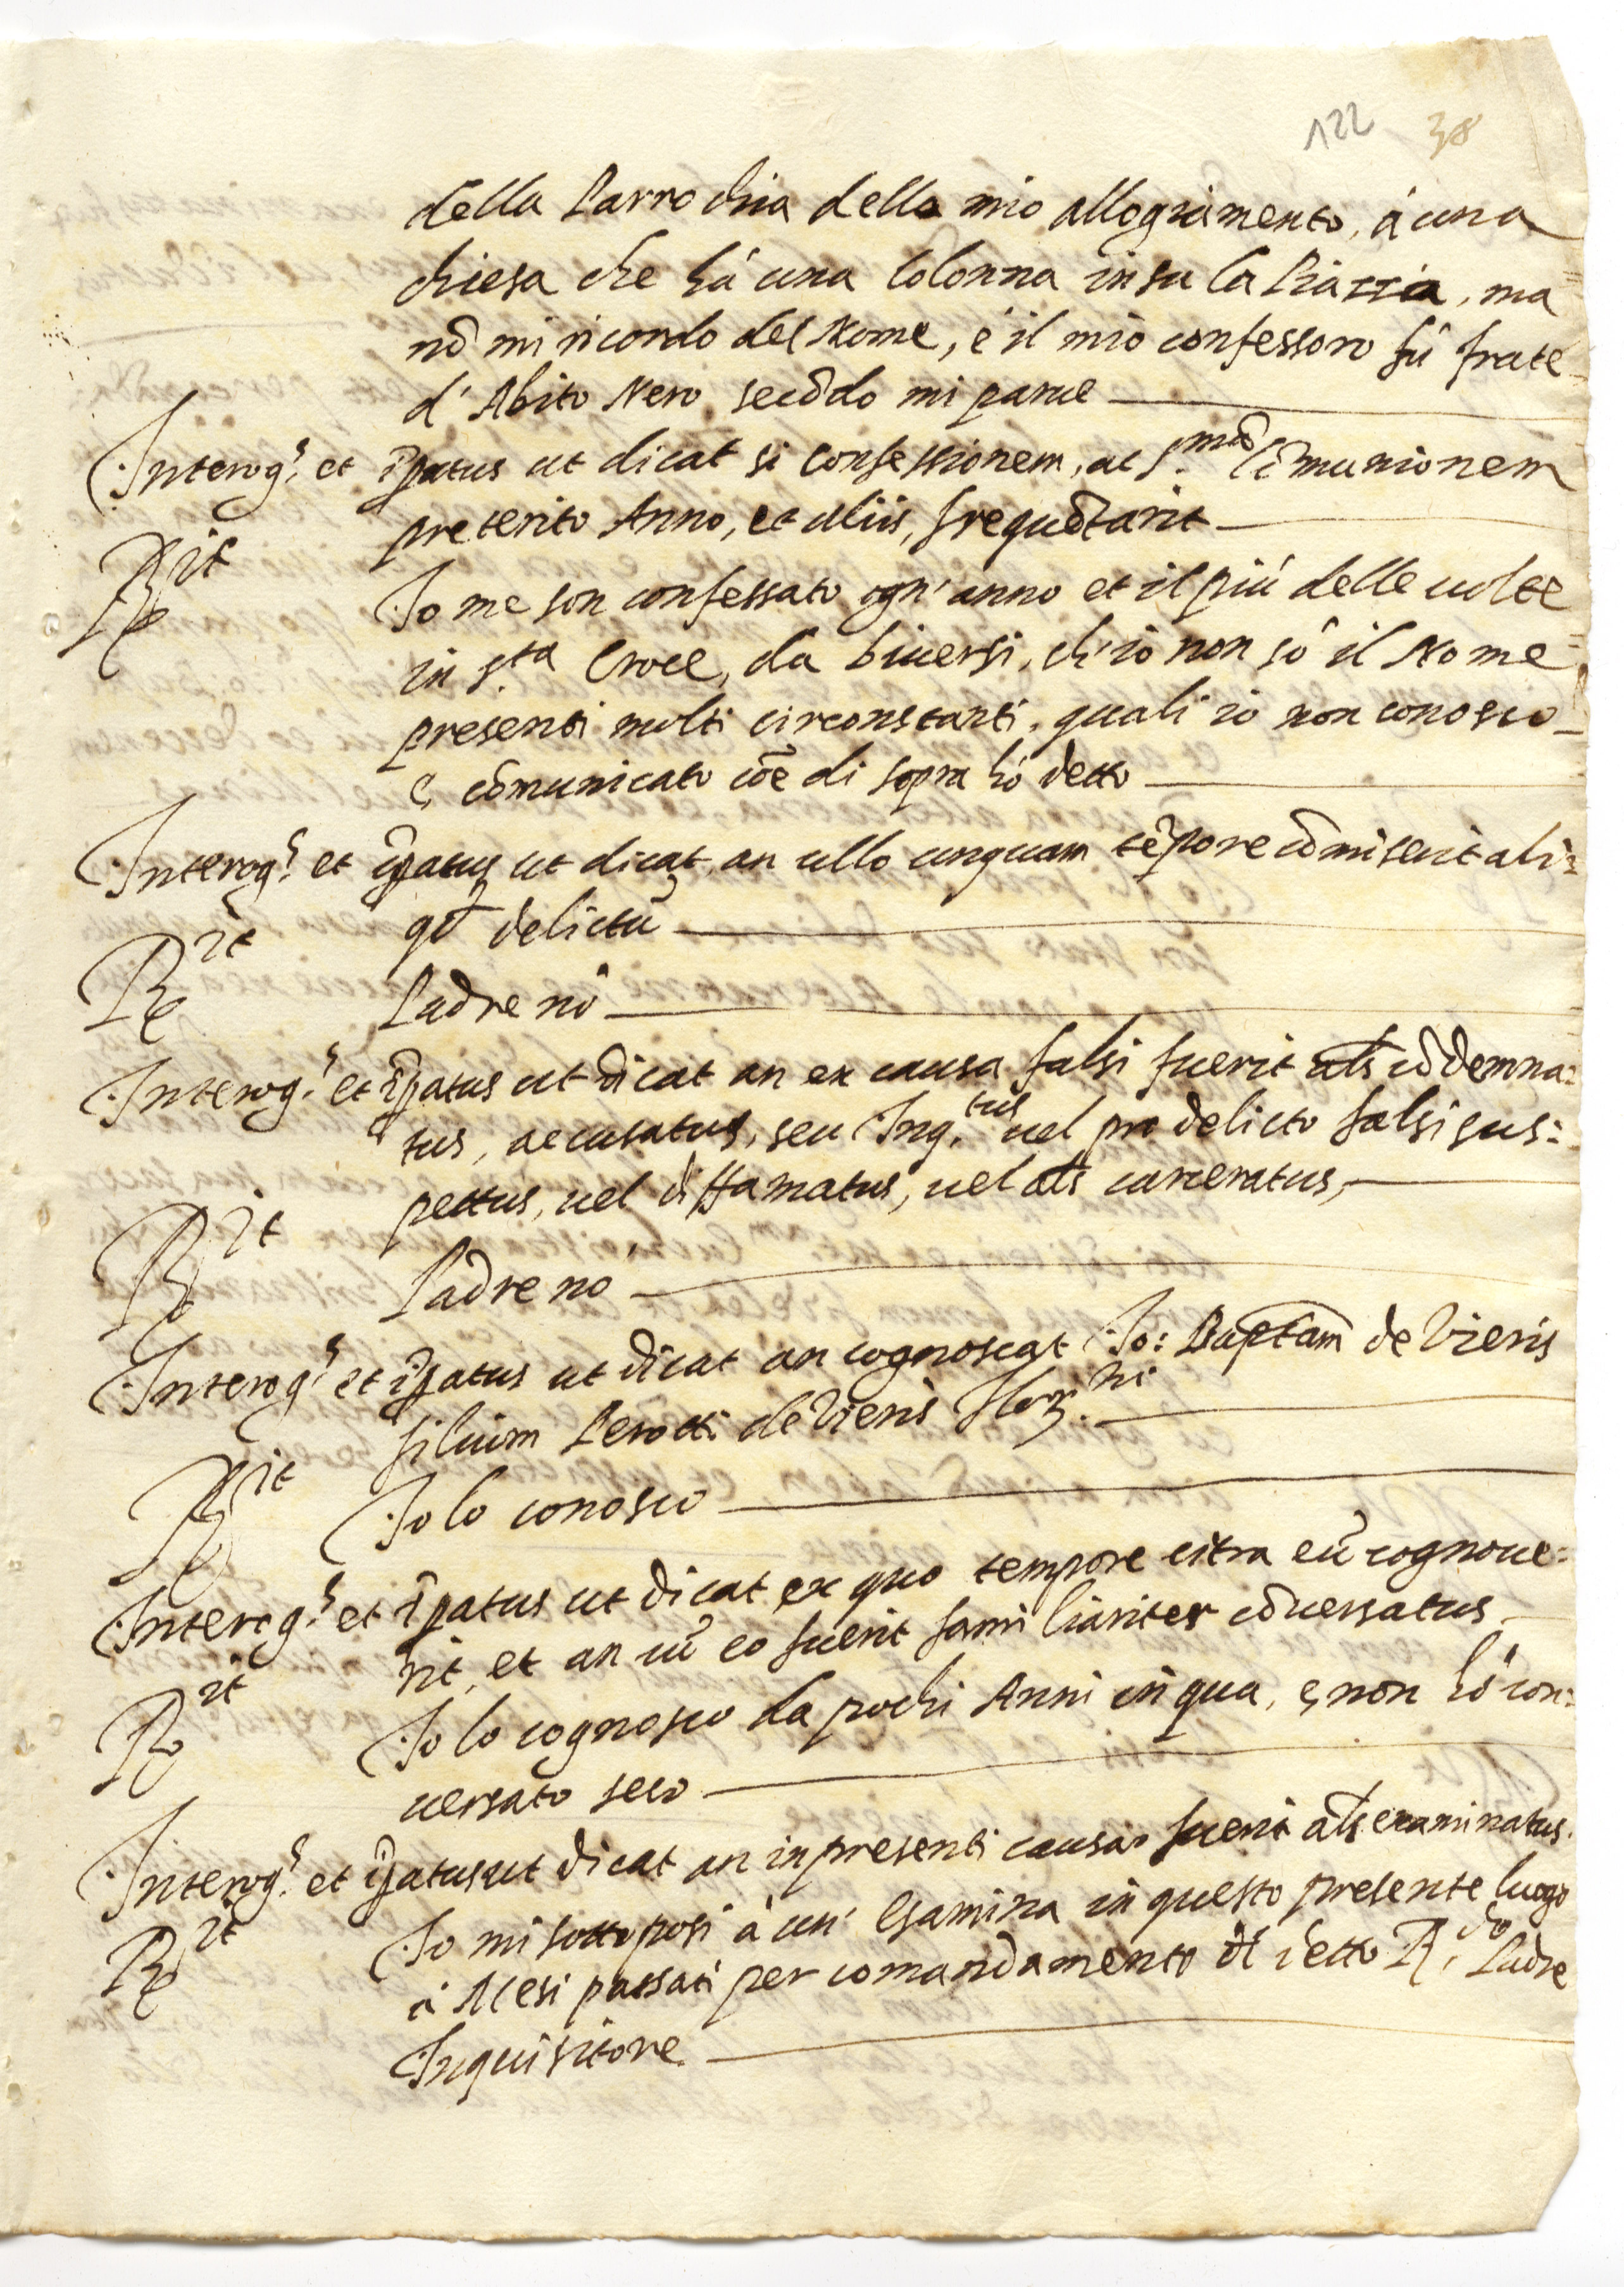 122 38
della Parrochia dello mio allogiamento, à una
chiesa che hà una Colonna in su la Piazza, ma
nō mi ricordo del Nome, e il mio confessoro fù frate
d'Abito Nero secōdo mi parue
Interog.s et īpatus ut dicat si Confessionem, ac S.mā Cōmunionem
preterito Anno, et aliis, frequētarit
Rit Io me son confessato ogn'anno et il più delle uolte
in S.ta Croce, da diuersi, ch'io non sò il Nome
presenti molti circonstanti, quali io non conosco
e, cōmunicato cōe di sopra hò detto
Interog.s et īpatus ut dicat, an ullo unquam tēpore cōmiserit ali=
qd̄ delictū
Rit Padre nò
Interog.s et īpatus ut dicat an ex causa falsi fuerit als cōdemna=
tus, accusatus, seu Inq.tus uel pro delicto falsi sus=
pettus, uel diffamatus, uel als carceratus,
Rit Padre nò
Interog.s et īpatus ut dicat an cognoscat Io: Baptam̄ de Vieris
filium Perotti de Vieris flor.ni
Rit Io lo conosco
Interog.s et īpatus ut dicat ex quo tempore citra eū cognoue=
rit, et an cū eo fuerit familiariter cōuersatus
Rit Io lo cognosco da pochi Anni in qua, e, non hò con=
uersato seco
Interog.s et īpatus ut dicat an in presenti causa fuerit als examinatus.
Rit Io mi sottoposi à un' Esamina in questo presente luogo
à Mesi passati per comandamento di detto R.do Padre
Inquisitore